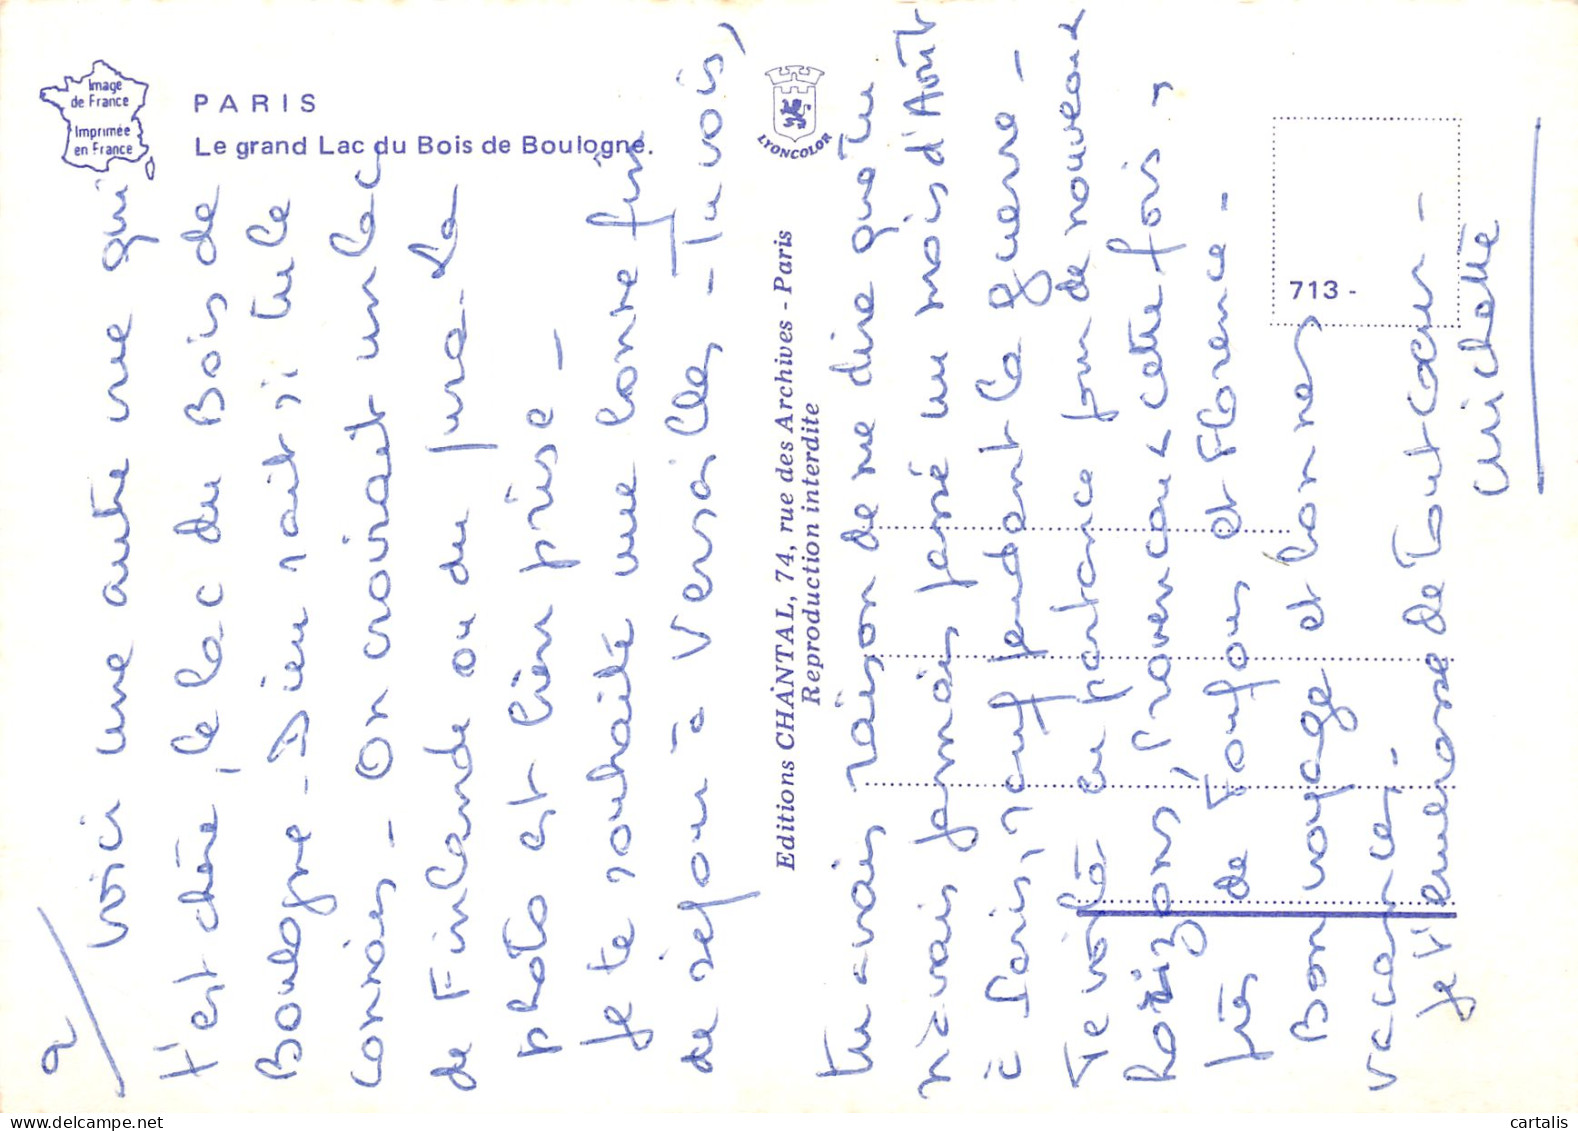 Image
de France
Imprimée
en France
PARIS
Le grand Lac du Bois de Boulogne.
LYONCOLOR
Editions CHANTAL, 74, rue des Archives - Paris
Reproduction interdite
713 -
2/
Voici une autre vue qui
t'est chère, le lac du Bois de
Boulogne - Dieu sait si tu le
connais - On croirait un lac
de Finlande ou du Jura - La
photo est bien prise -
Je te souhaite une bonne fin
de séjour à Versailles - Tu vois,
tu avais raison de me dire que tu
n'avais jamais passé un mois d'Août
à Paris, sauf pendant la guerre -
Te voilà en partance pour de nouveaux
horizons, Provençaux cette fois,
près de et Florence -
Bon voyage et bonnes
vacances -
Je t'embrasse de Tout Cœur -
Michette
cartalis